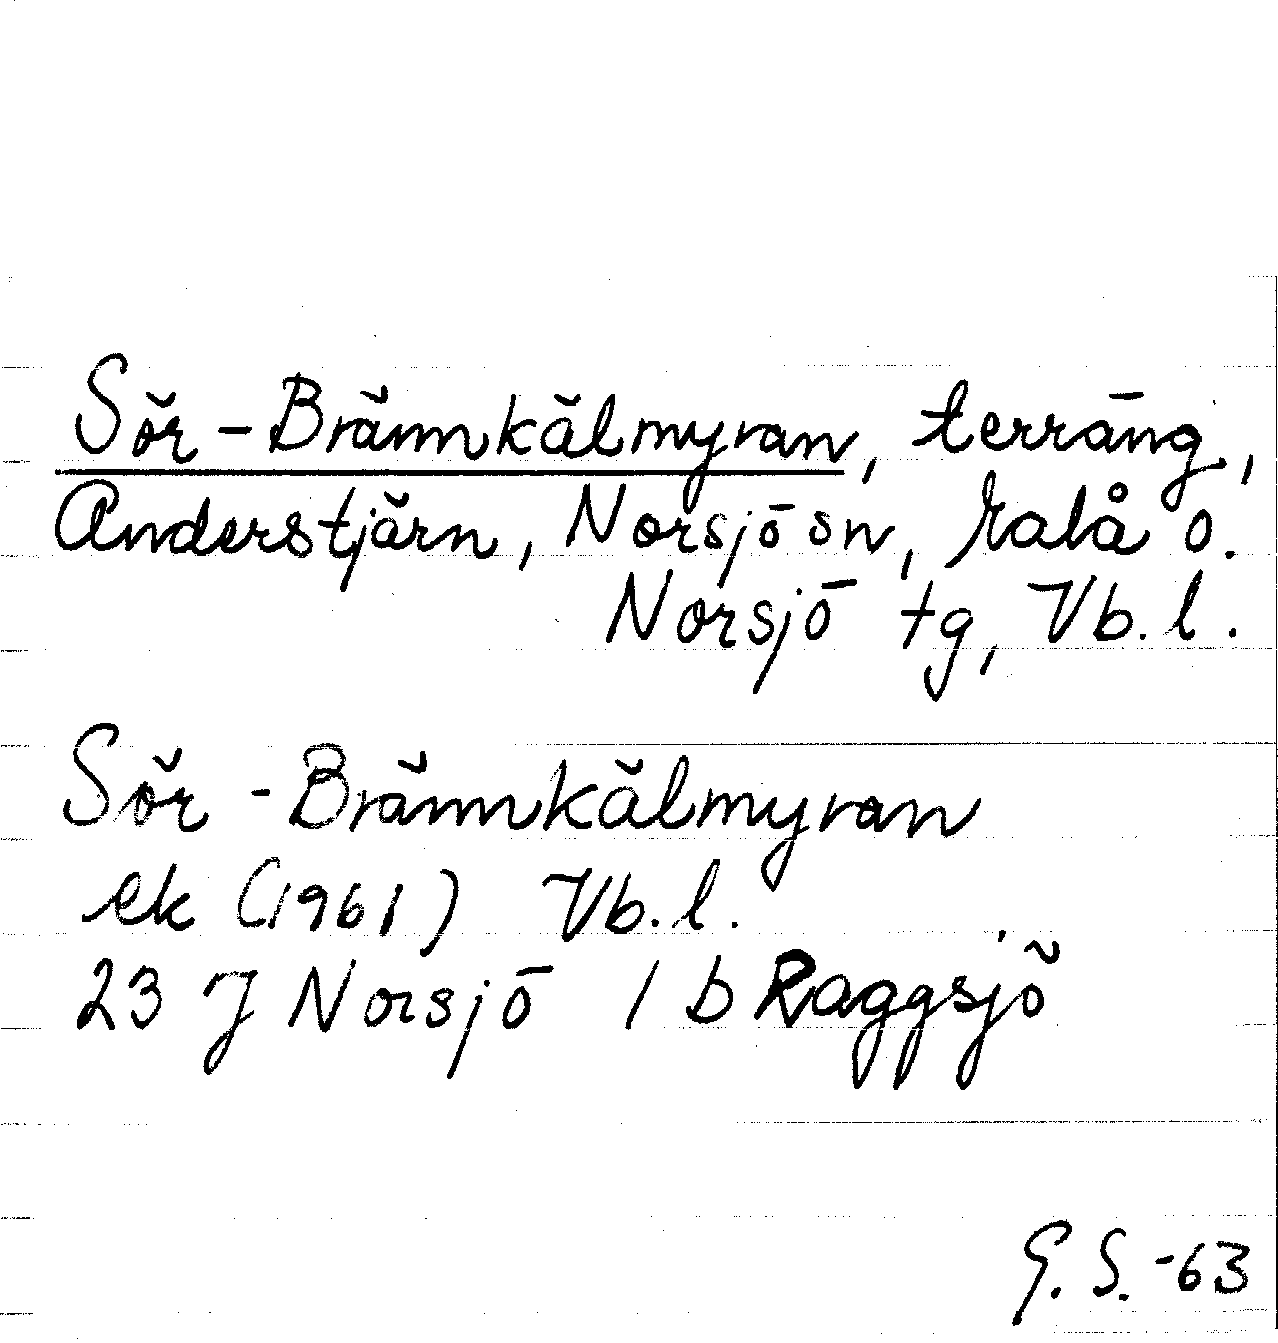 Sör-Brännkälmyran, terräng,
Anderstjärn, Norsjö sn, Malå o.
Norsjö tg, Vb.l.
Sör-Brännkälmyran
ek (1961) Vb.l.
23 J Norsjö 1 b Raggsjö
G. S. -63